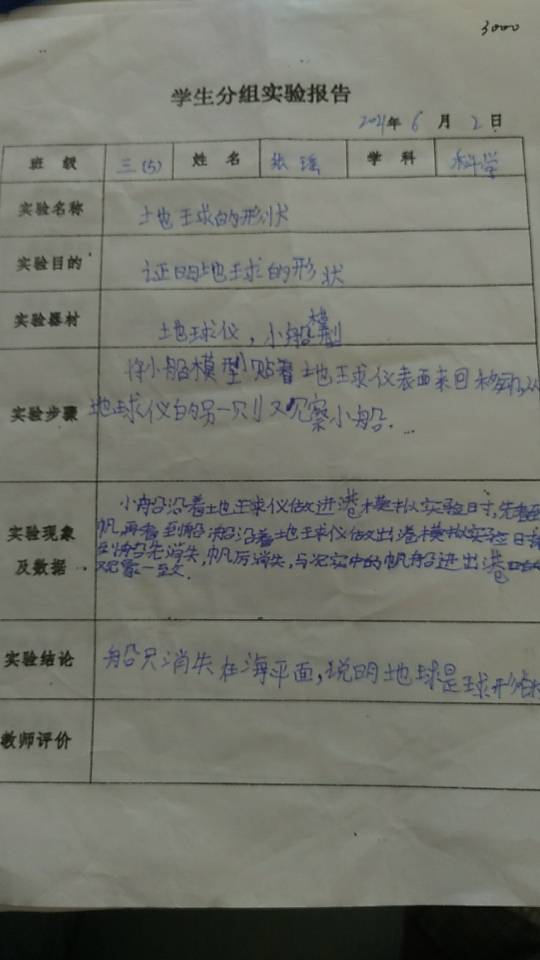 3000
学生分组实验报告
2021年 6 月 2 日
班 级 三(5) 姓 名 张瑶 学 科 科学
实验名称 地球的形状
实验目的 证明地球的形状
实验器材 地球仪，小船模型
将小船模型贴着地球仪表面来回移动，从
实验步骤 地球仪的另一侧观察小船...
小船沿着地球仪做进港模拟实验时，先看到
实验现象 帆，再看到船，船沿着地球仪做出港模拟实验时看
及数据 到船先消失，帆后消失，与现实中的帆船进出港口的
观象一致.
实验结论 船只消失在海平面，说明地球是球形的
教师评价